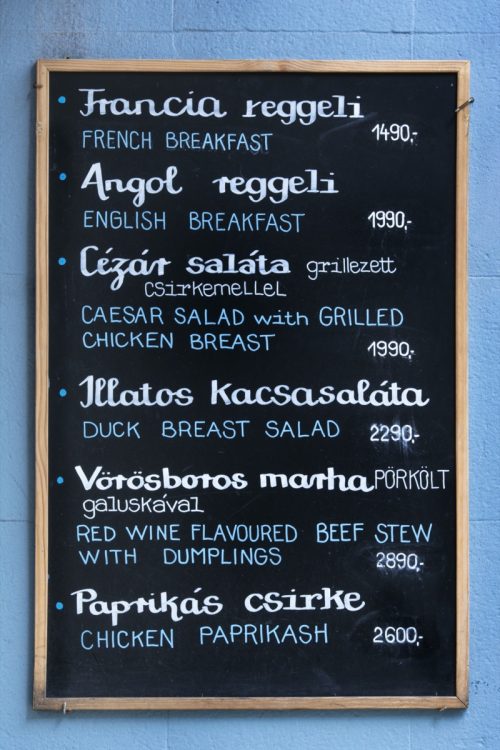 Francia reggeli
FRENCH BREAKFAST 1490,-
Angol reggeli
ENGLISH BREAKFAST 1990,-
Cézár saláta grillezett
csirkemellel
CAESAR SALAD with GRILLED
CHICKEN BREAST 1990,-
Illatos kacsasaláta
DUCK BREAST SALAD 2290,-
Vörösboros marha PÖRKÖLT
galuskával
RED WINE FLAVOURED BEEF STEW
WITH DUMPLINGS 2890,-
Paprikás csirke
CHICKEN PAPRIKASH 2600,-